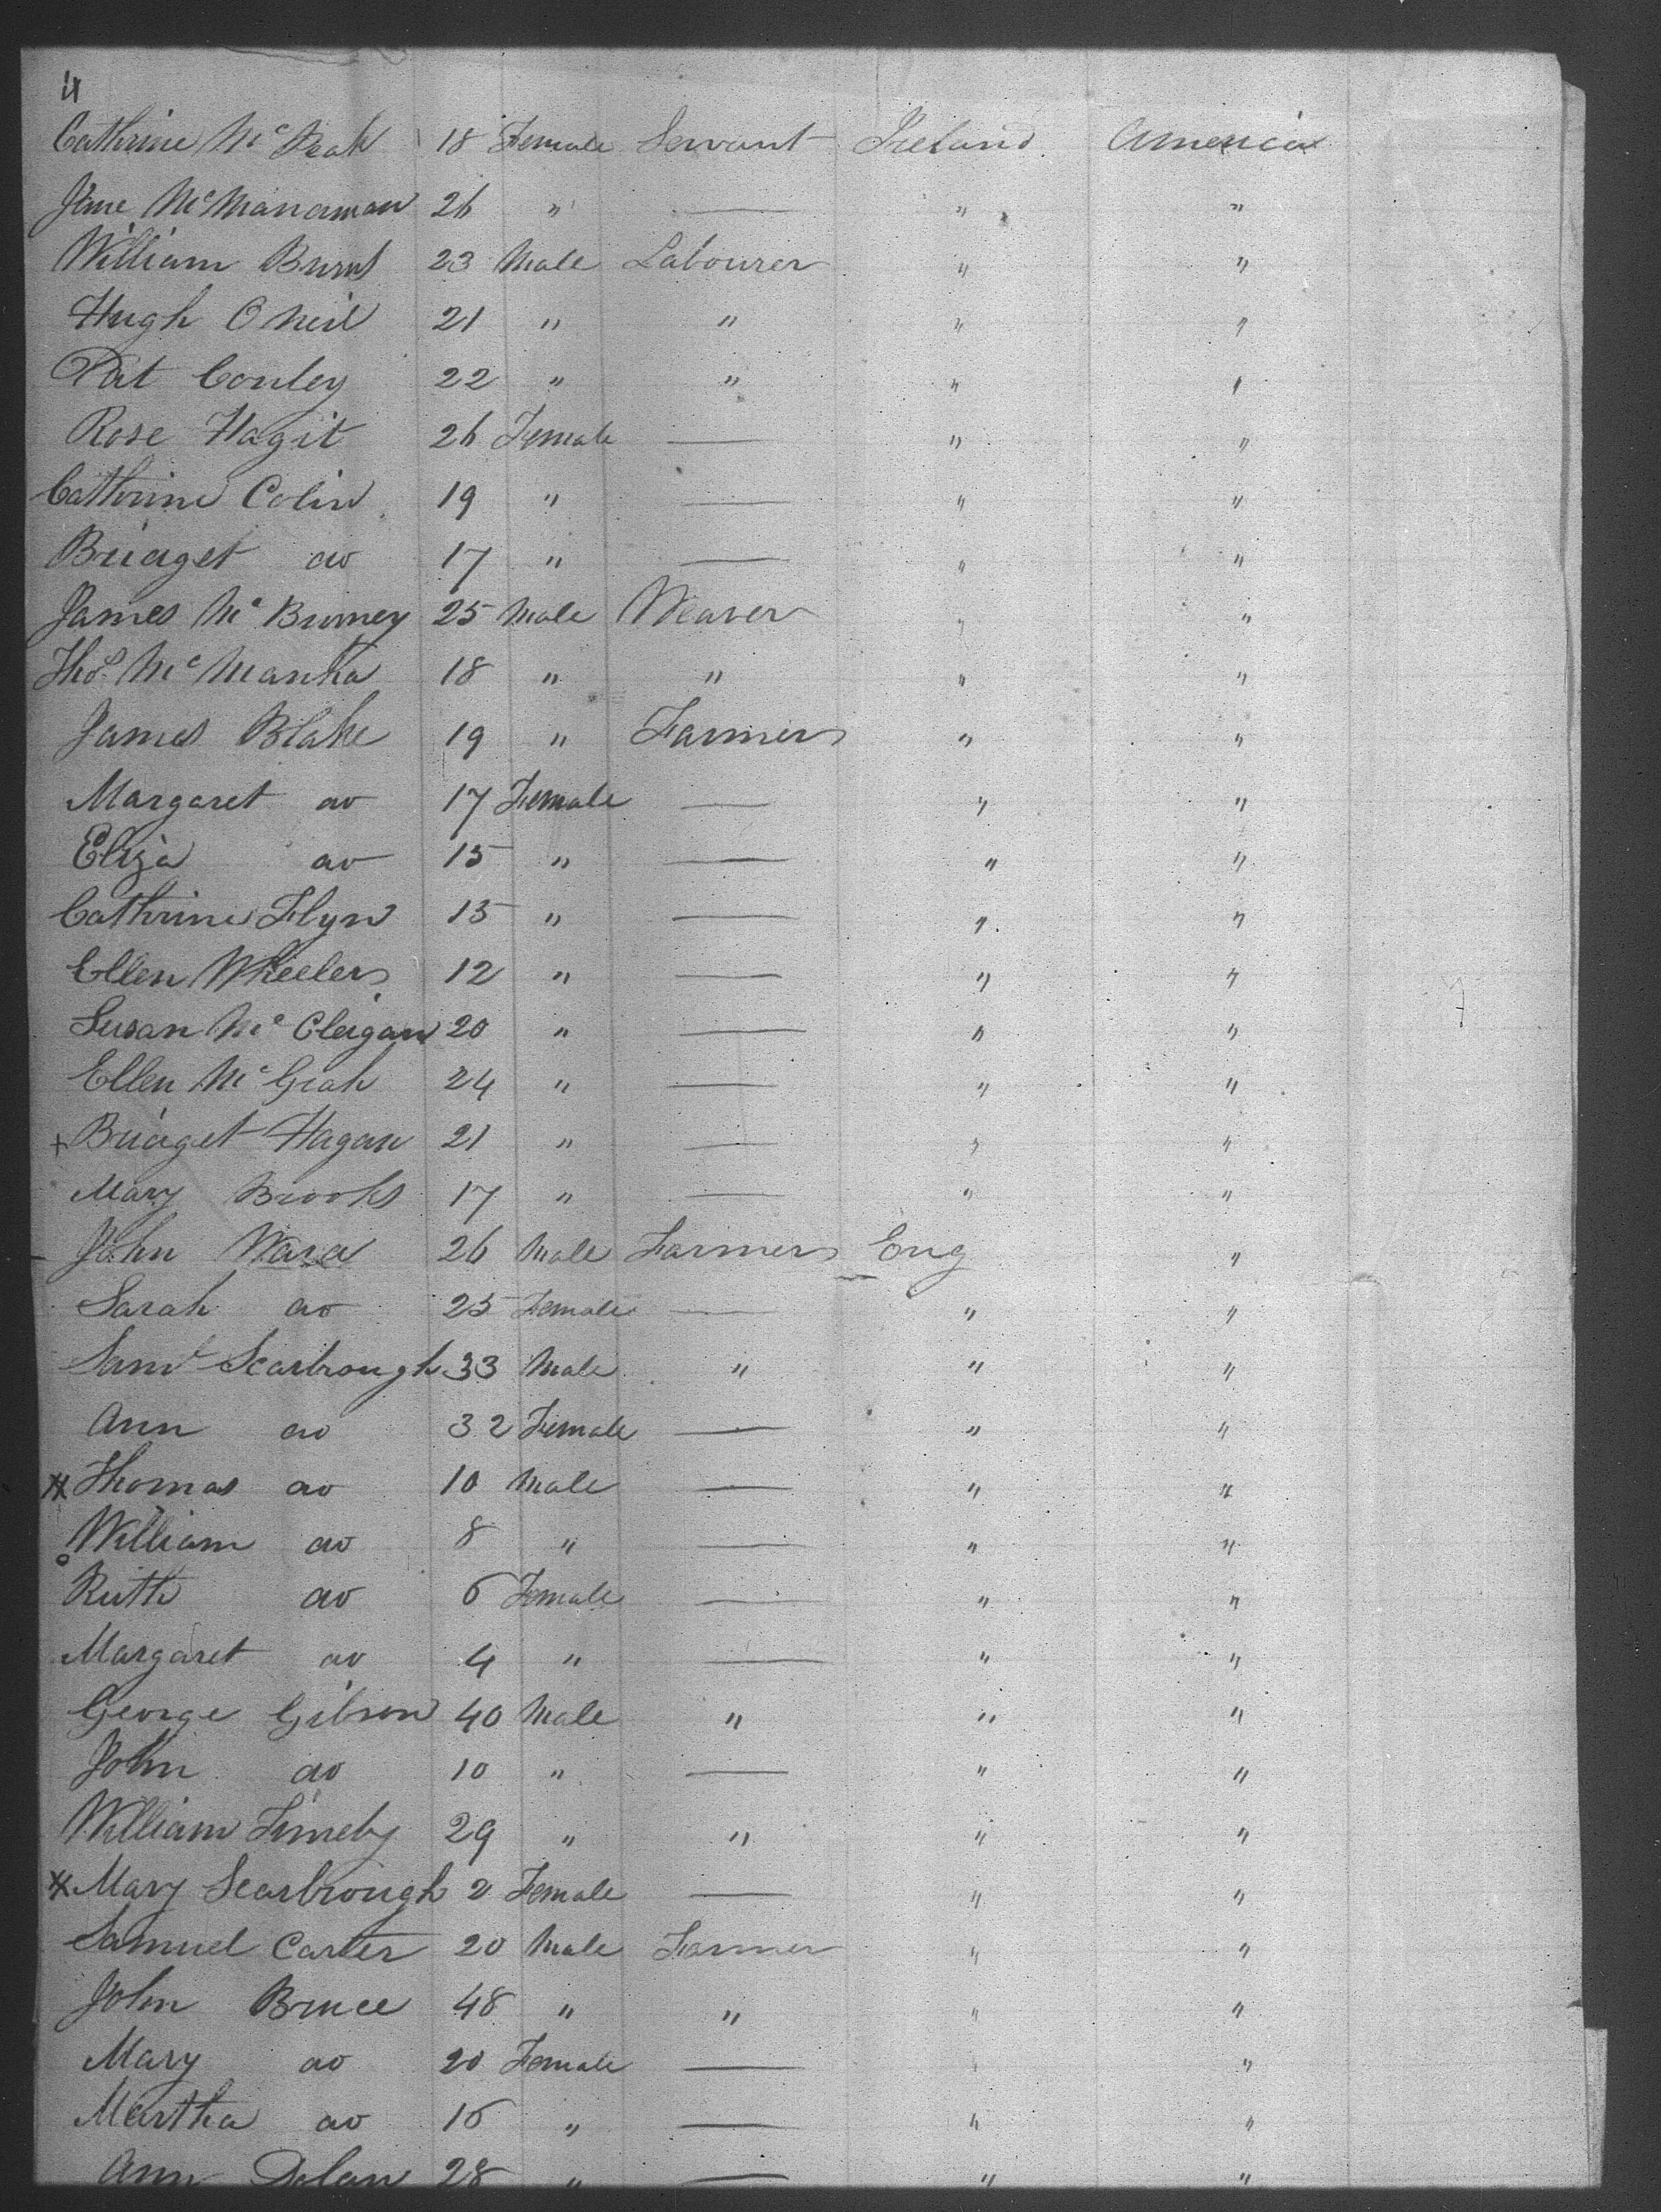 4
Cathrine Mc Peak 18 Female Servant Ireland America
Jane McManaman 26 " — " "
William Burns 23 Male Labourer " "
Hugh O Neil 21 " " " "
Pat Conley 22 " " " "
Rose Hagit 26 Female — " "
Cathrine Colin 19 " — " "
Bridget do 17 " — " "
James Mc Burney 25 Male Weaver " "
Thos. Mc Manha 18 " " " "
James Blake 19 " Farmer " "
Margaret do 17 Female — " "
Eliza do 15 " — " "
Cathrine Flyn 15 " — " "
Ellen Wheeler 12 " — " "
Susan Mc Cleigan 20 " — " "
Ellen Mc Grah 24 " — " "
+ Bridget Hagan 21 " — " "
Mary Brooks 17 " — " "
John Ward 26 Male Farmer Eng "
Sarah do 25 Female — " "
Saml Scarbrough 33 Male " " "
Ann do 32 Female — " "
Thomas do 10 Male — " "
William do 8 " — " "
Ruth do 6 Female — " "
Margaret do 4 " — " "
George Gibson 40 Male " " "
John do 10 " — " "
William 29 " " " "
Mary Scarbrough 2 Female — " "
Samuel Carter 20 Male Farmer " "
John Bruce 48 " " " "
Mary do 20 Female — " "
Martha do 16 " — " "
Ann Dolan 28 " — " "